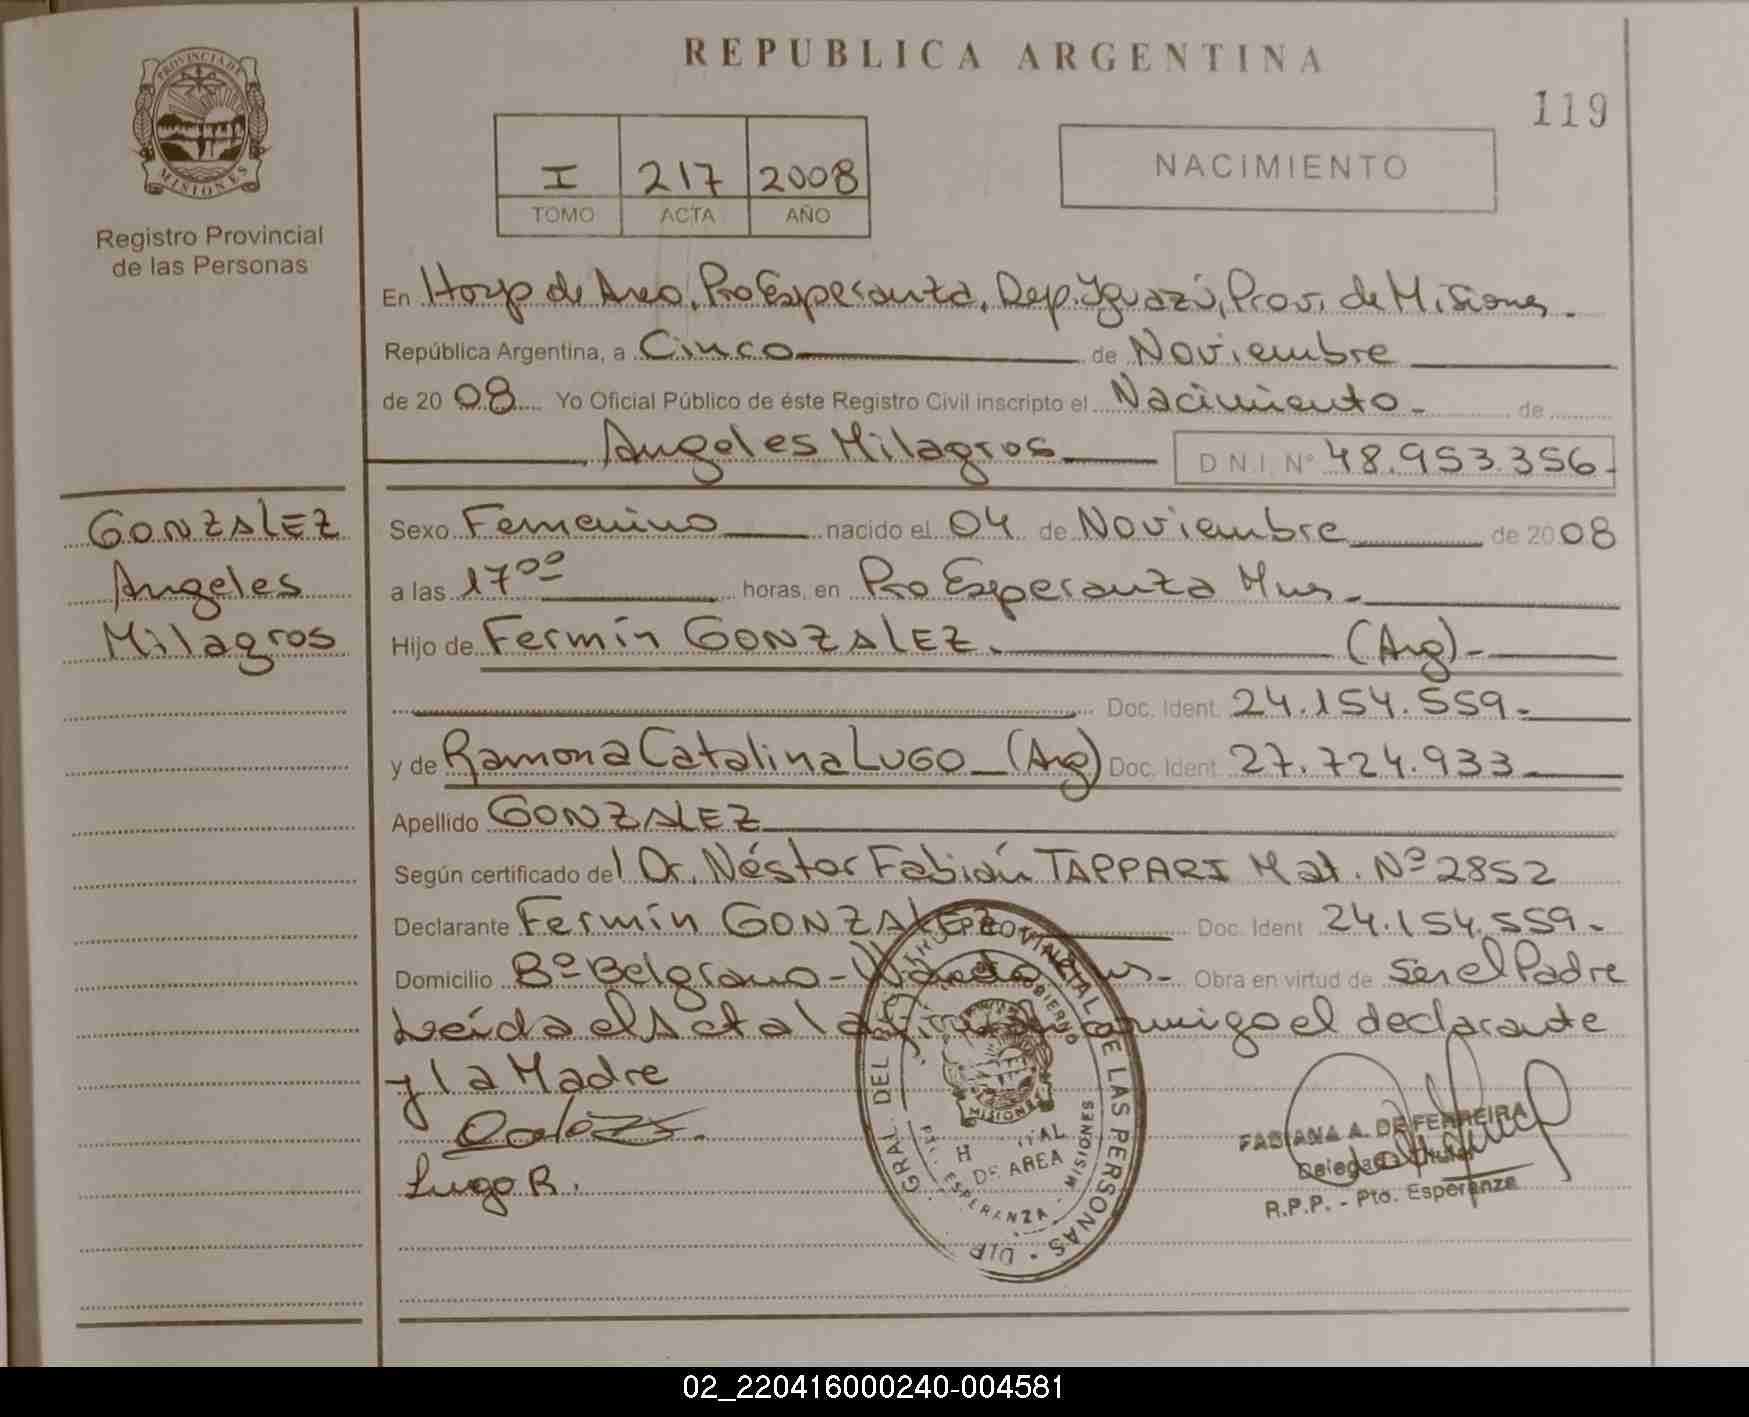 REPUBLICA ARGENTINA
119
PROVINCIA DE
MISIONES
Registro Provincial
de las Personas
I 217 2008
TOMO ACTA AÑO
NACIMIENTO
En Hosp de Area, Pto Esperanza, Dep. Iguazú, Prov. de Misiones.
República Argentina, a Cinco de Noviembre
de 2008 Yo Oficial Público de éste Registro Civil inscripto el Nacimiento - de
Angeles Milagros D.N.I. Nº 48.953.356-
GONZALEZ
Angeles
Milagros
Sexo Femenino nacido el 04 de Noviembre de 2008
a las 17⁰⁰ horas, en Pto Esperanza Mnes.
Hijo de Fermín GONZALEZ. (Arg)-
Doc. Ident. 24.154.559-
y de Ramona Catalina LUGO (Arg) Doc. Ident. 27.724.933
Apellido GONZALEZ
Según certificado del Dr. Néstor Fabián TAPPARI Mat. Nº 2852
Declarante Fermín GONZALEZ Doc. Ident 24.154.559-
Domicilio Bº Belgrano - Wanda Obra en virtud de Ser el Padre
Leída el Acta la firman conmigo el declarante
y la Madre
Lugo R.
GRAL. DEL REGISTRO PROVINCIAL DE LAS PERSONAS
GOBIERNO
MISIONES
DE AREA
ESPERANZA - MISIONES
FABIANA A. DE FERREIRA
Delegada Titular
R.P.P. - Pto. Esperanza
02_220416000240-004581